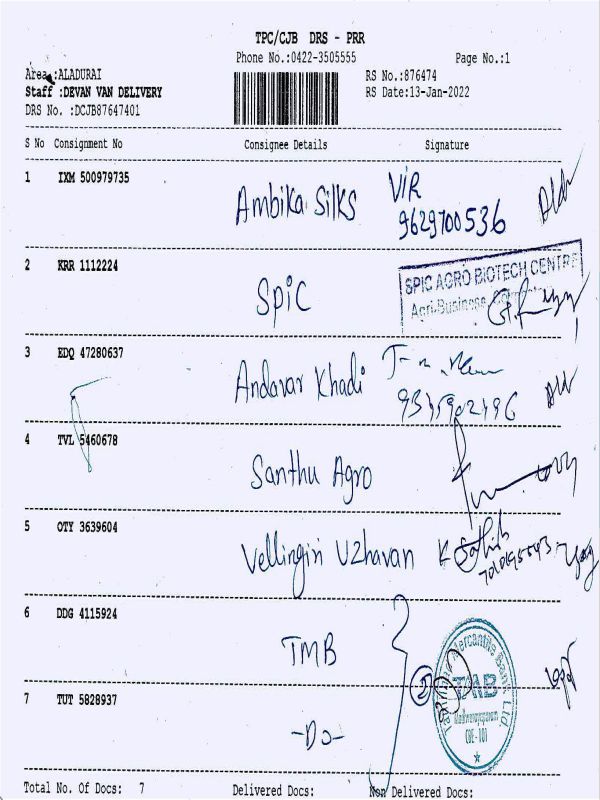 TPC/CJB DRS - PRR
Phone No.:0422-3505555 Page No.:1
Area :ALADURAI RS No.:876474
Staff :DEVAN VAN DELIVERY RS Date:13-Jan-2022
DRS No. :DCJB87647401
S No Consignment No Consignee Details Signature
1 IXM 500979735 Ambika Silks VIR
9629700536
2 KRR 1112224 SPIC SPIC AGRO BIOTECH CENTRE
Agri-Business
3 EDQ 47280637 Andavar Khadi
4 TVL 5460678 Santhu Agro
5 OTY 3639604 Vellingiri Uzhavan K
6 DDG 4115924 TMB
Mercantile Bank Ltd
TMB
CBE-101
7 TUT 5828937 -Do-
Total No. Of Docs: 7 Delivered Docs: Non Delivered Docs: